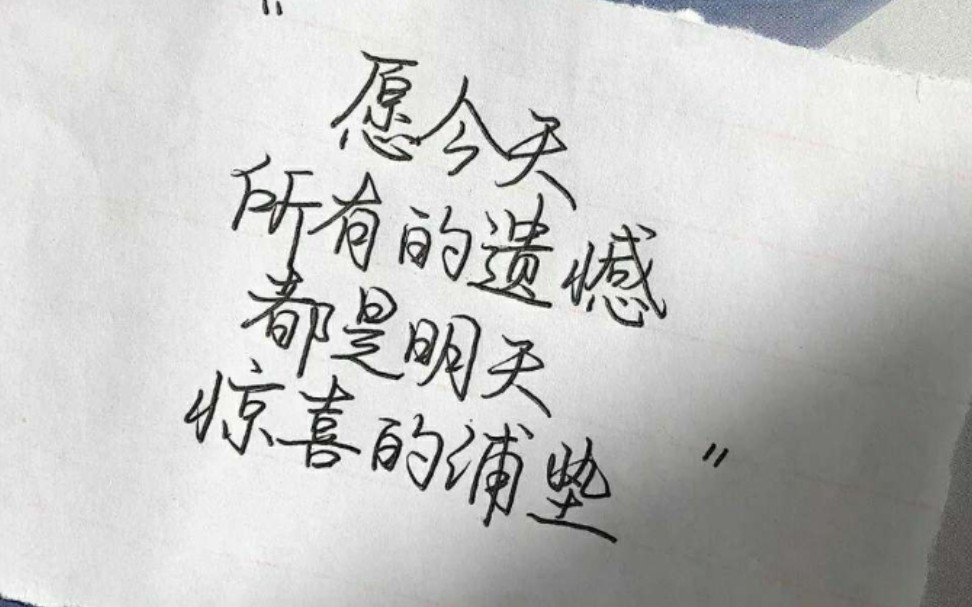 "愿今天
所有的遗憾
都是明天
惊喜的浦垫"